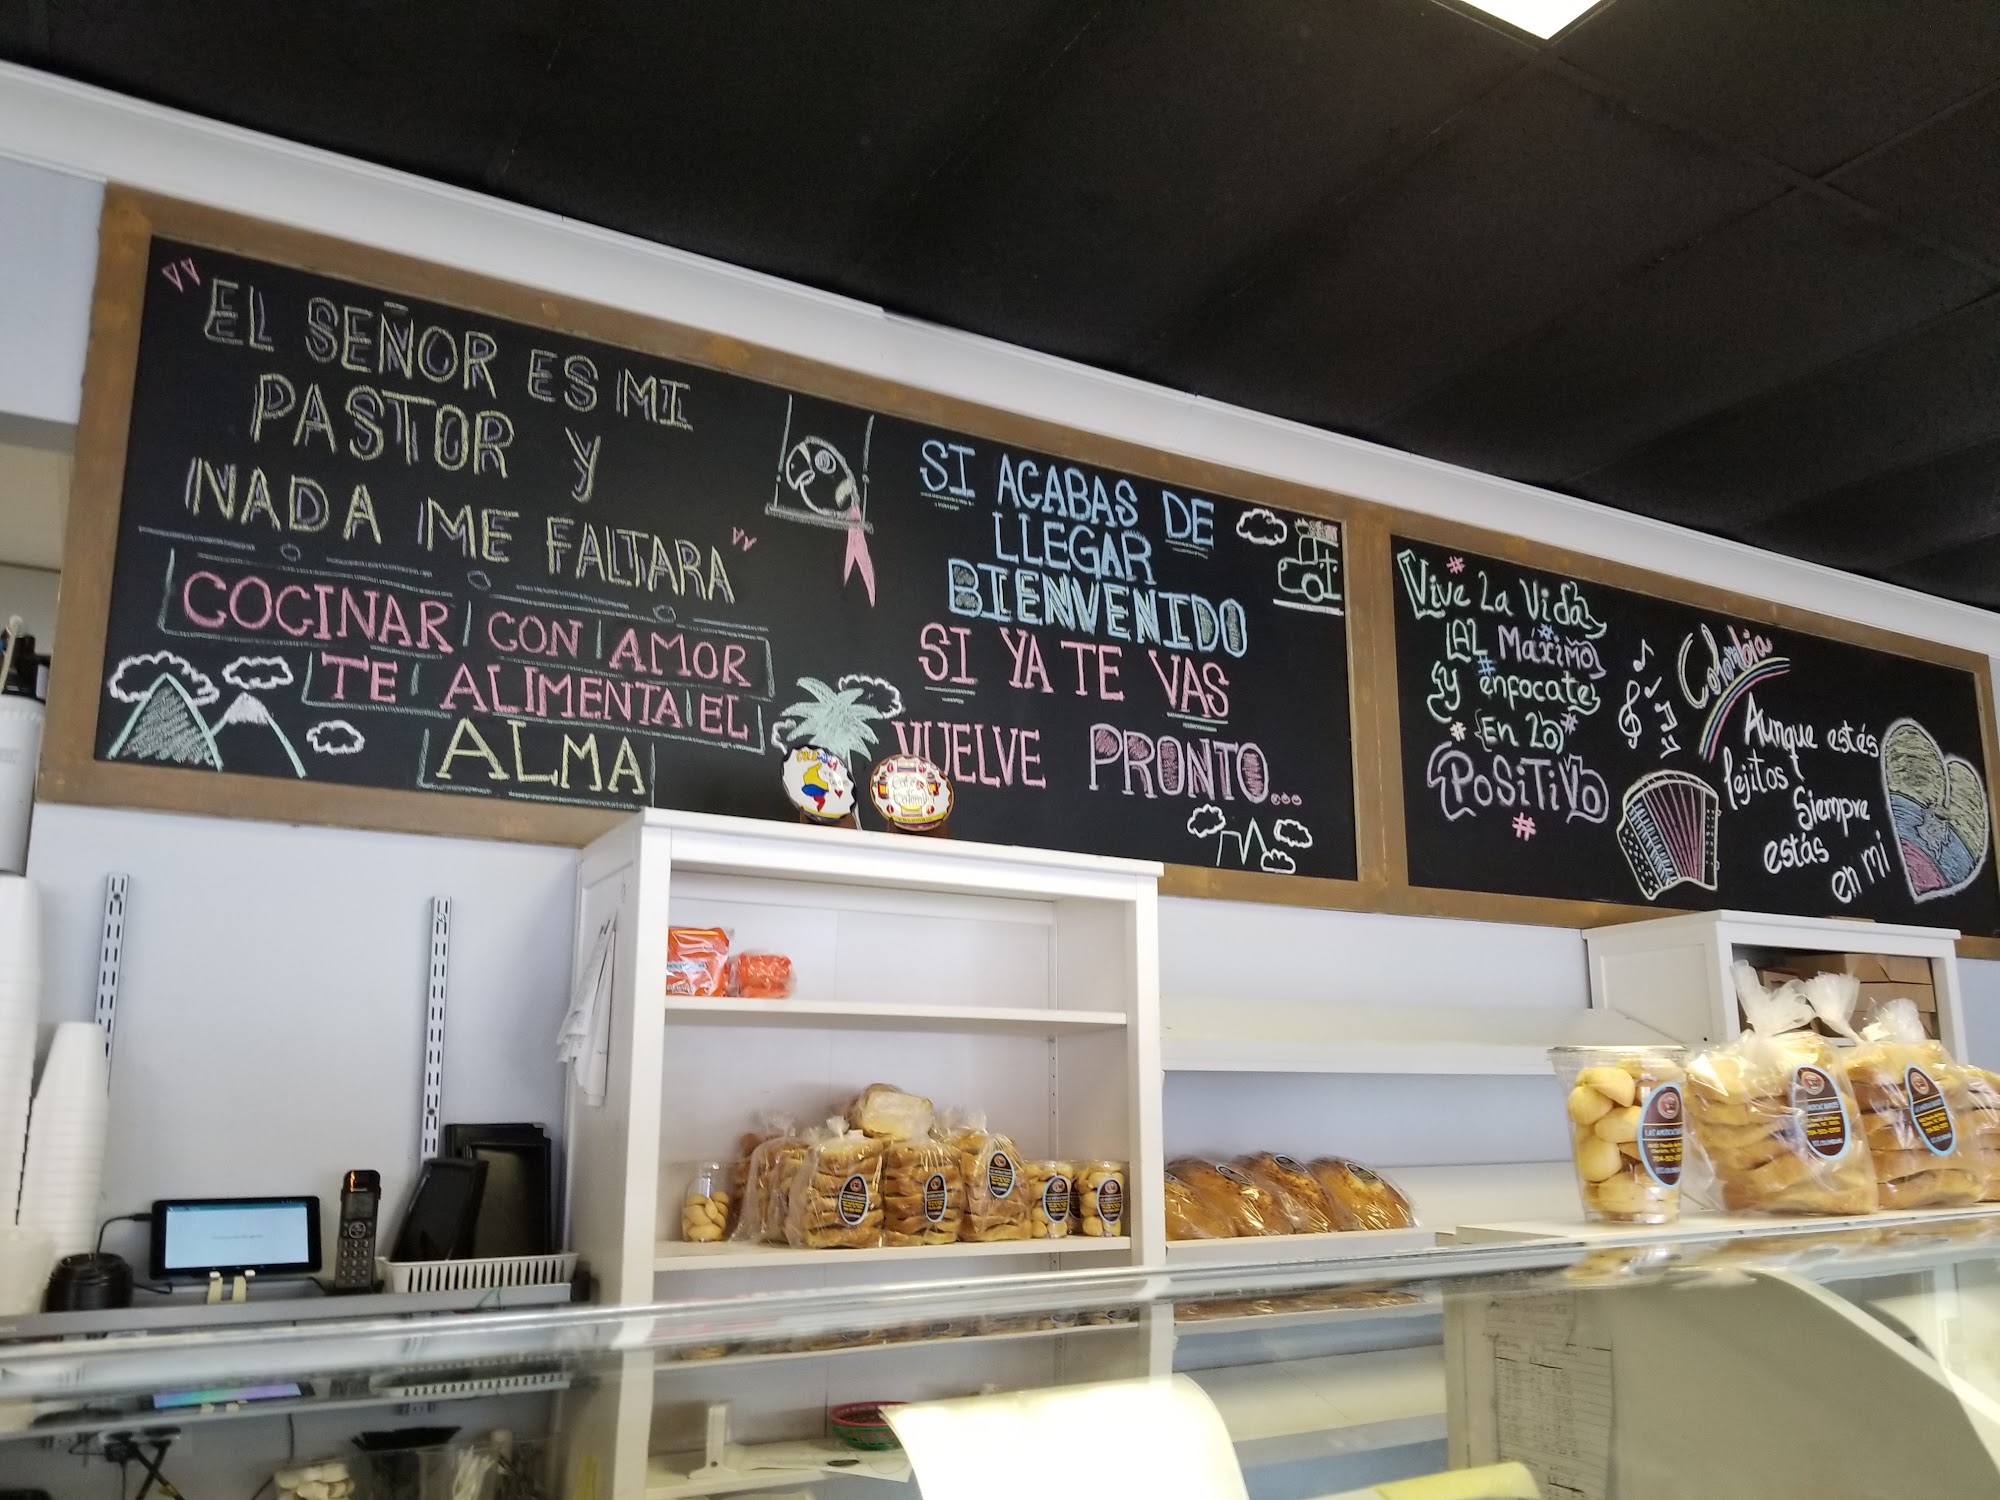 "EL SEÑOR ES MI
PASTOR Y
NADA ME FALTARA"
COCINAR CON AMOR
TE ALIMENTA EL
ALMA
SI ACABAS DE
LLEGAR
BIENVENIDO
SI YA TE VAS
VUELVE PRONTO...
#
Vive La Vida
AL Máximo
y enfocate
En lo
PoSiTiVo
#
Colombia
Aunque estés
lejitos
Siempre
estás
en mi